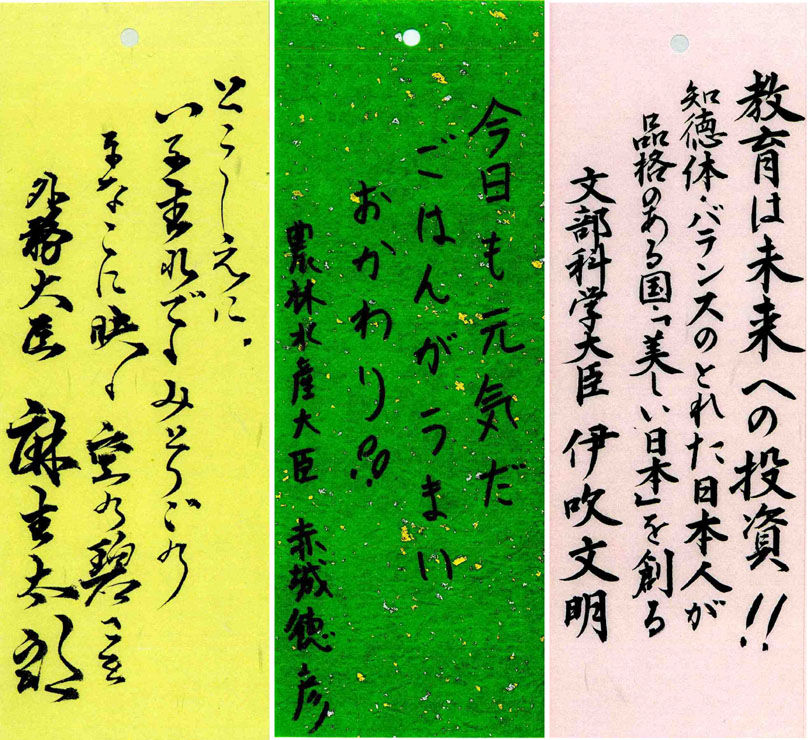 教育は未来への投資!!
知徳体・バランスのとれた日本人が
品格のある国「美しい日本」を創る
文部科学大臣 伊吹文明
今日も元気だ
ごはんがうまい
おかわり!!
農林水産大臣 赤城徳彦
とこしえに
みどりごの
まなこに映く 空の碧さを
外務大臣 麻生太郎